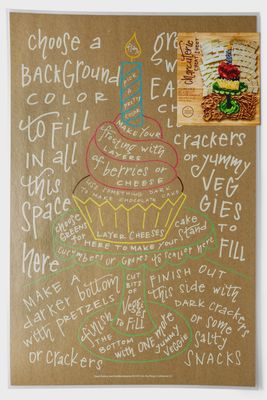 choose a
BACKGROUND
COLOR
to FILL
IN all
this
SPACE
here
crackers
or yummy
VEG
GIES to
FILL
PICK
A
PRETTY
COLOR
MAKE YOUR
frosting with
LAYERS
of berries or
CHEESE
USE SOMETHING DARK
TO MAKE CHOCOLATE CAKE
LAYER CHEESES
HERE TO MAKE YOUR
choose
GREENS
for
cake
stand
cucumbers or GRAPES to center here
MAKE A
darker bottom
with PRETZELS
or crackers
CUT
BITS
OF
Veggies
to FILL
THE
BOTTOM
with ONE more
yummy
VEGGIE
FINISH OUT
this side with
DARK CRACKERS
or some
salty
SNACKS
charcuterie